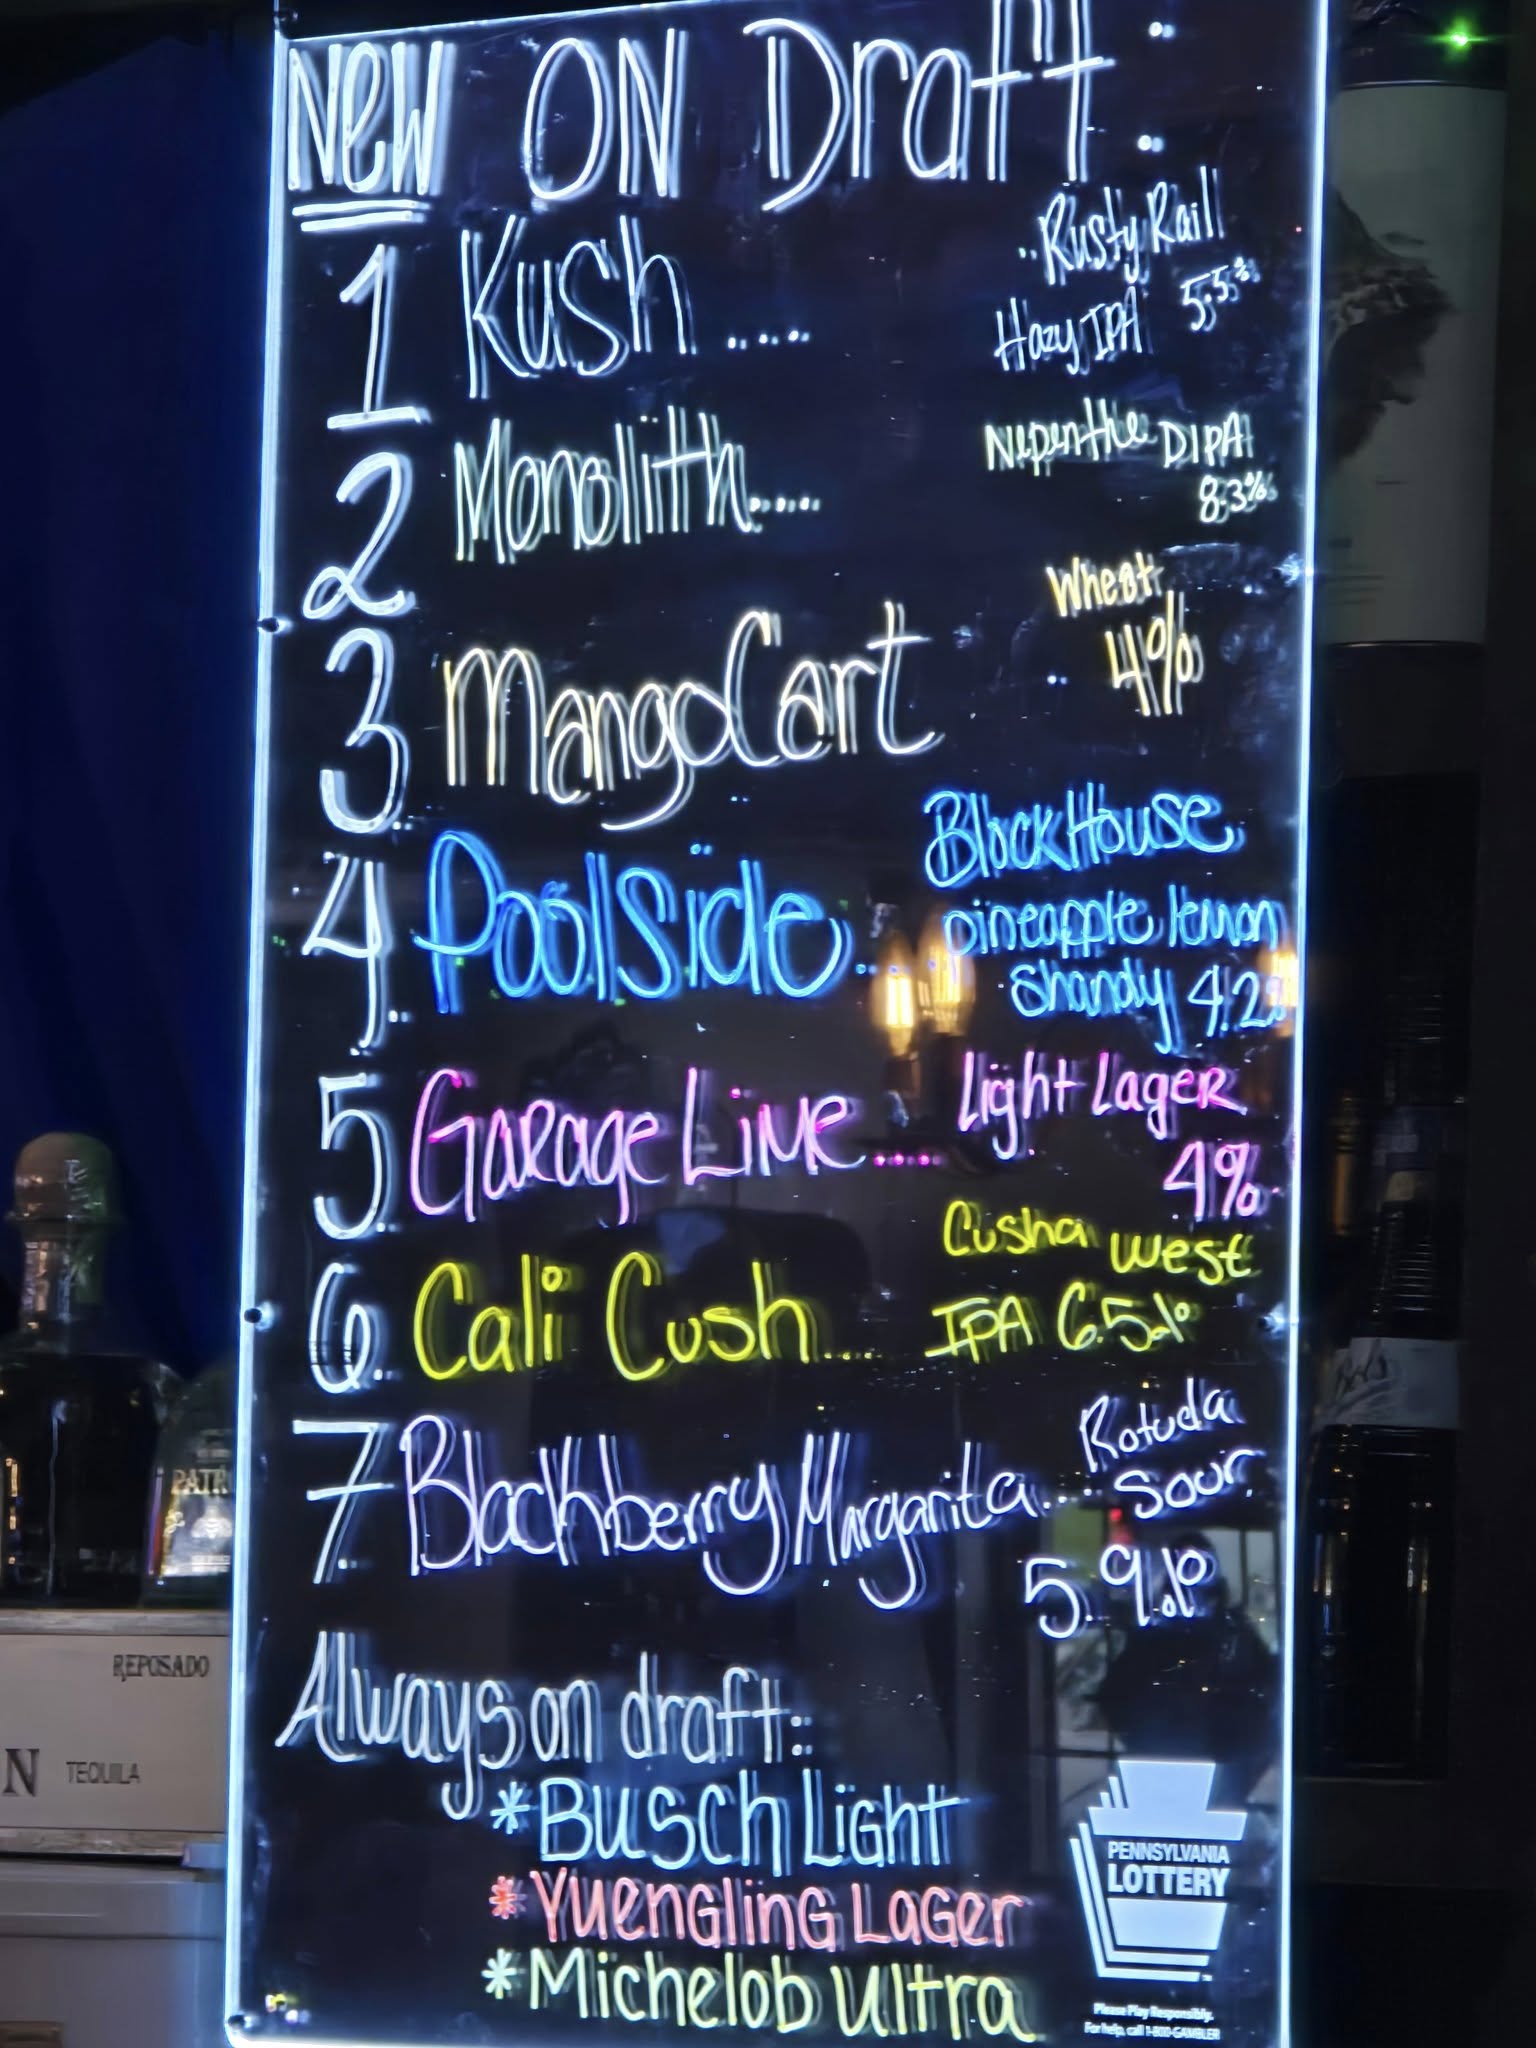 New ON Draft:
1 Kush ..... Rusty Rail
Hazy IPA 5.5%
2 Monolith..... Nepenthe DIPA
8.3%
3. MangoCart Wheat
4%
4. Poolside.. BlockHouse
pineapple lemon
shandy 4.2%
5. Garage Lime..... Light Lager
4%
6. Cali Cush.... Cusha west
IPA 6.5%
7. Blackberry Margarita.... Rotuda
Sour
5.9%
Always on draft:
*Busch Light
*Yuengling Lager
*Michelob Ultra
PENNSYLVANIA
LOTTERY
Please Play Responsibly.
For help, call 1-800-GAMBLER
PATR
REPOSADO
N TEQUILA